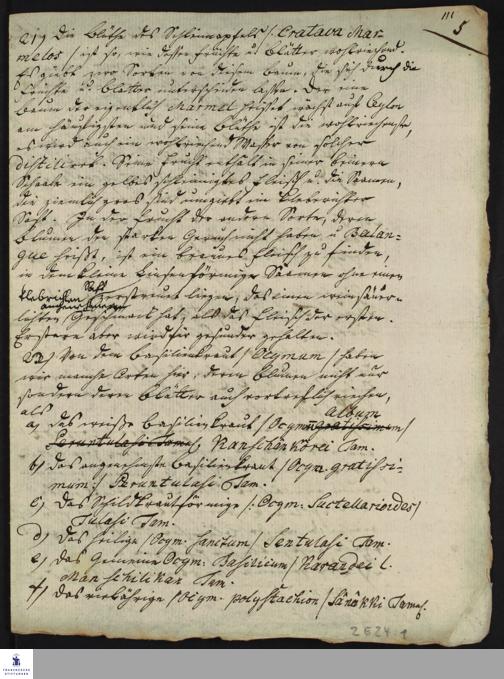 111
5
21) Die Blüthe des Schleimapfels /: Crataeva Mar-
melos / ist so, wie dessen Früchte u. Blätter wohlriechend.
Es giebt zwo Sorten von diesem Baum, die sich durch die
Früchte u. Blätter unterscheiden lassen. Der eine
Baum der eigentlich Marmel heisset wächst auf Ceylon
am häufigsten und seine Blüthe ist die wohlriechenste,
es wird auch ein wohlriechend Wasser von solcher
distilirt. Seine Frucht enthält in seiner braunen
Schaale ein gelbes schleimigtes Fleisch u. die Saamen,
die ziemlich gros sind umgiebt ein kleberichter
Saft. In der Frucht der andern Sorte, deren
Blumen den starken Geruch nicht haben u. Balan-
gue heisst, ist ein braunes Fleisch zu finden,
in dem kleine Linsenförmige Saamen ohne einen
klebrichten Saft zerstreuet liegen, das einen
lichten Geschmack hat, als das Fleisch der ersten.
Erstere aber wird für gesunder gehalten.
22) Von dem Basilienkraut / Ocymum / haben
wir manche Arten hier, deren Blumen nicht nur
sondern deren Blätter auch vortreflich riechen,
als
a) das weisse Basilienkraut / Ocym. album /
Nanschenkorei Tam.
b) das angenehmste Basilienkraut / Ocym. gratissi-
mum / Peruntulasi Tam.
c) Das Schildkrautförmige /: Ocym: Sactellarioides /
Tulasi Tam.
d) das heilige / Ocym. sanctum / Sentulasi Tam.
e) das Gemeine Ocym: Basilicum / Karandei l.
Manschiliken Tam.
f) das vieljährige / Ocym. polystachion / Sanakki Tam.
2 E 24 : 1
FRANCKESCHE
STIFTUNGEN